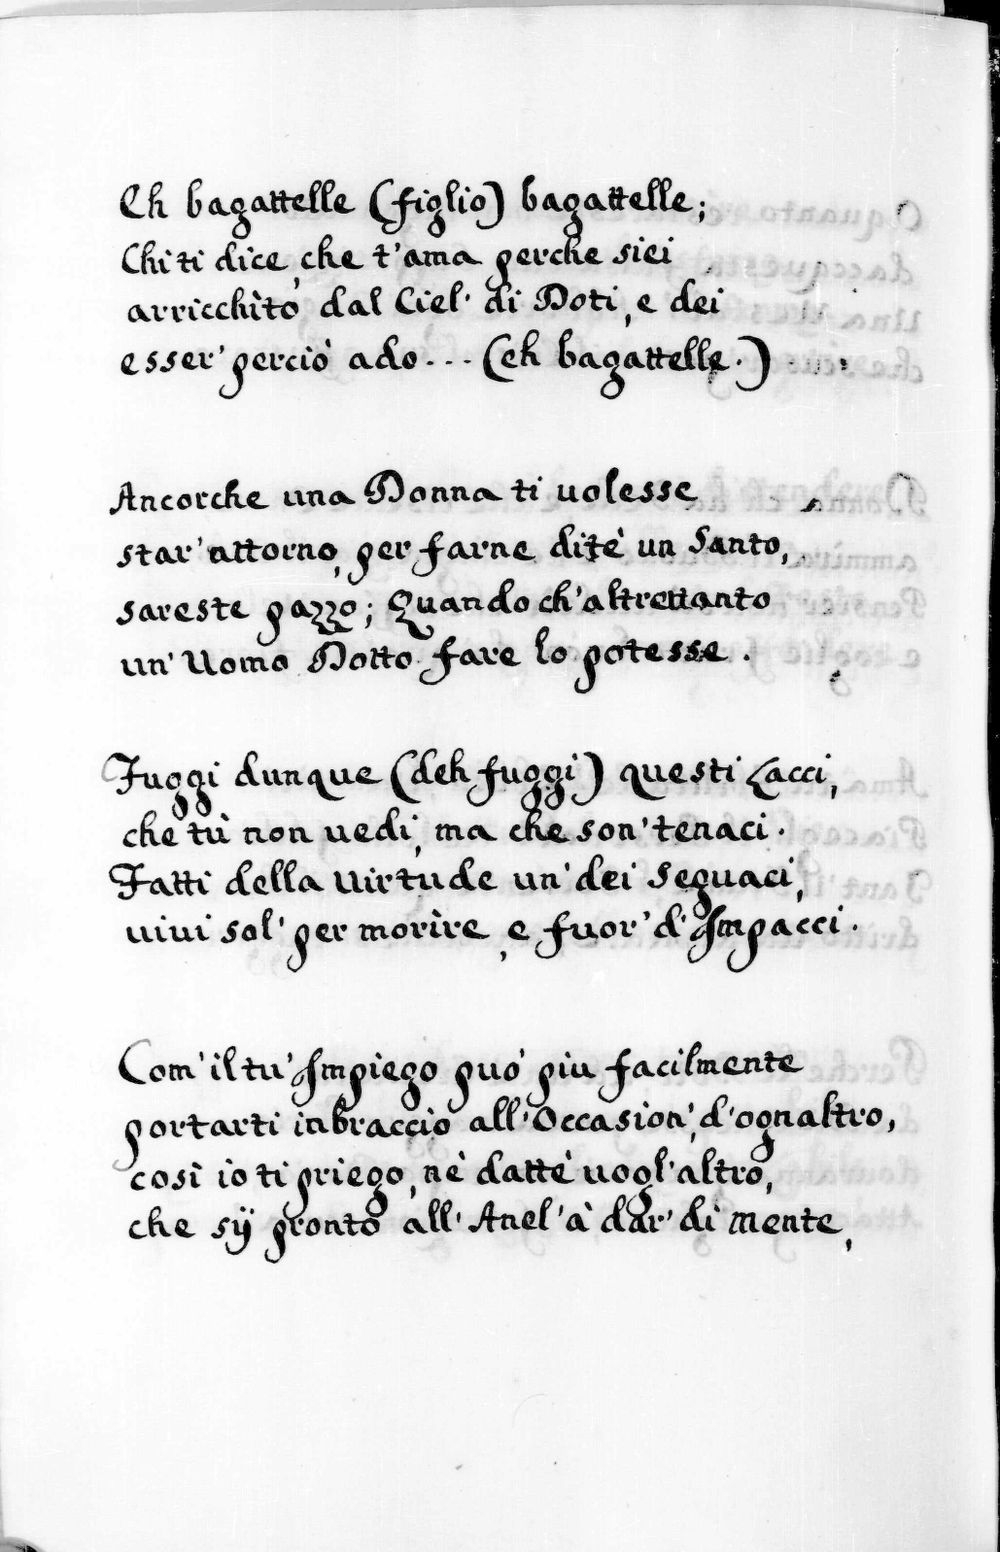 Eh bagattelle (figlio) bagattelle;
Chi ti dice, che t'ama perche siei
arricchito dal Ciel' di Doti, e dei
esser' perciò ado... (eh bagattelle.)
Ancorche una Donna ti uolesse
star' attorno, per farne ditè un Santo,
sareste pazzo; Quando ch'altrettanto
un' Uomo Dotto fare lo potesse.
Fuggi dunque (deh fuggi) questi Lacci,
che tù non uedi, ma che son' tenaci.
Fatti della uirtude un' dei seguaci,
uiui sol' per morire, e fuor' d' Impacci.
Com' il tu' Impiego può piu facilmente
portarti inbraccio all' Occasion', d'ognaltro,
così io ti priego, nè dattè uogl'altro,
che sÿ pronto all' Anel' à dar' di mente,